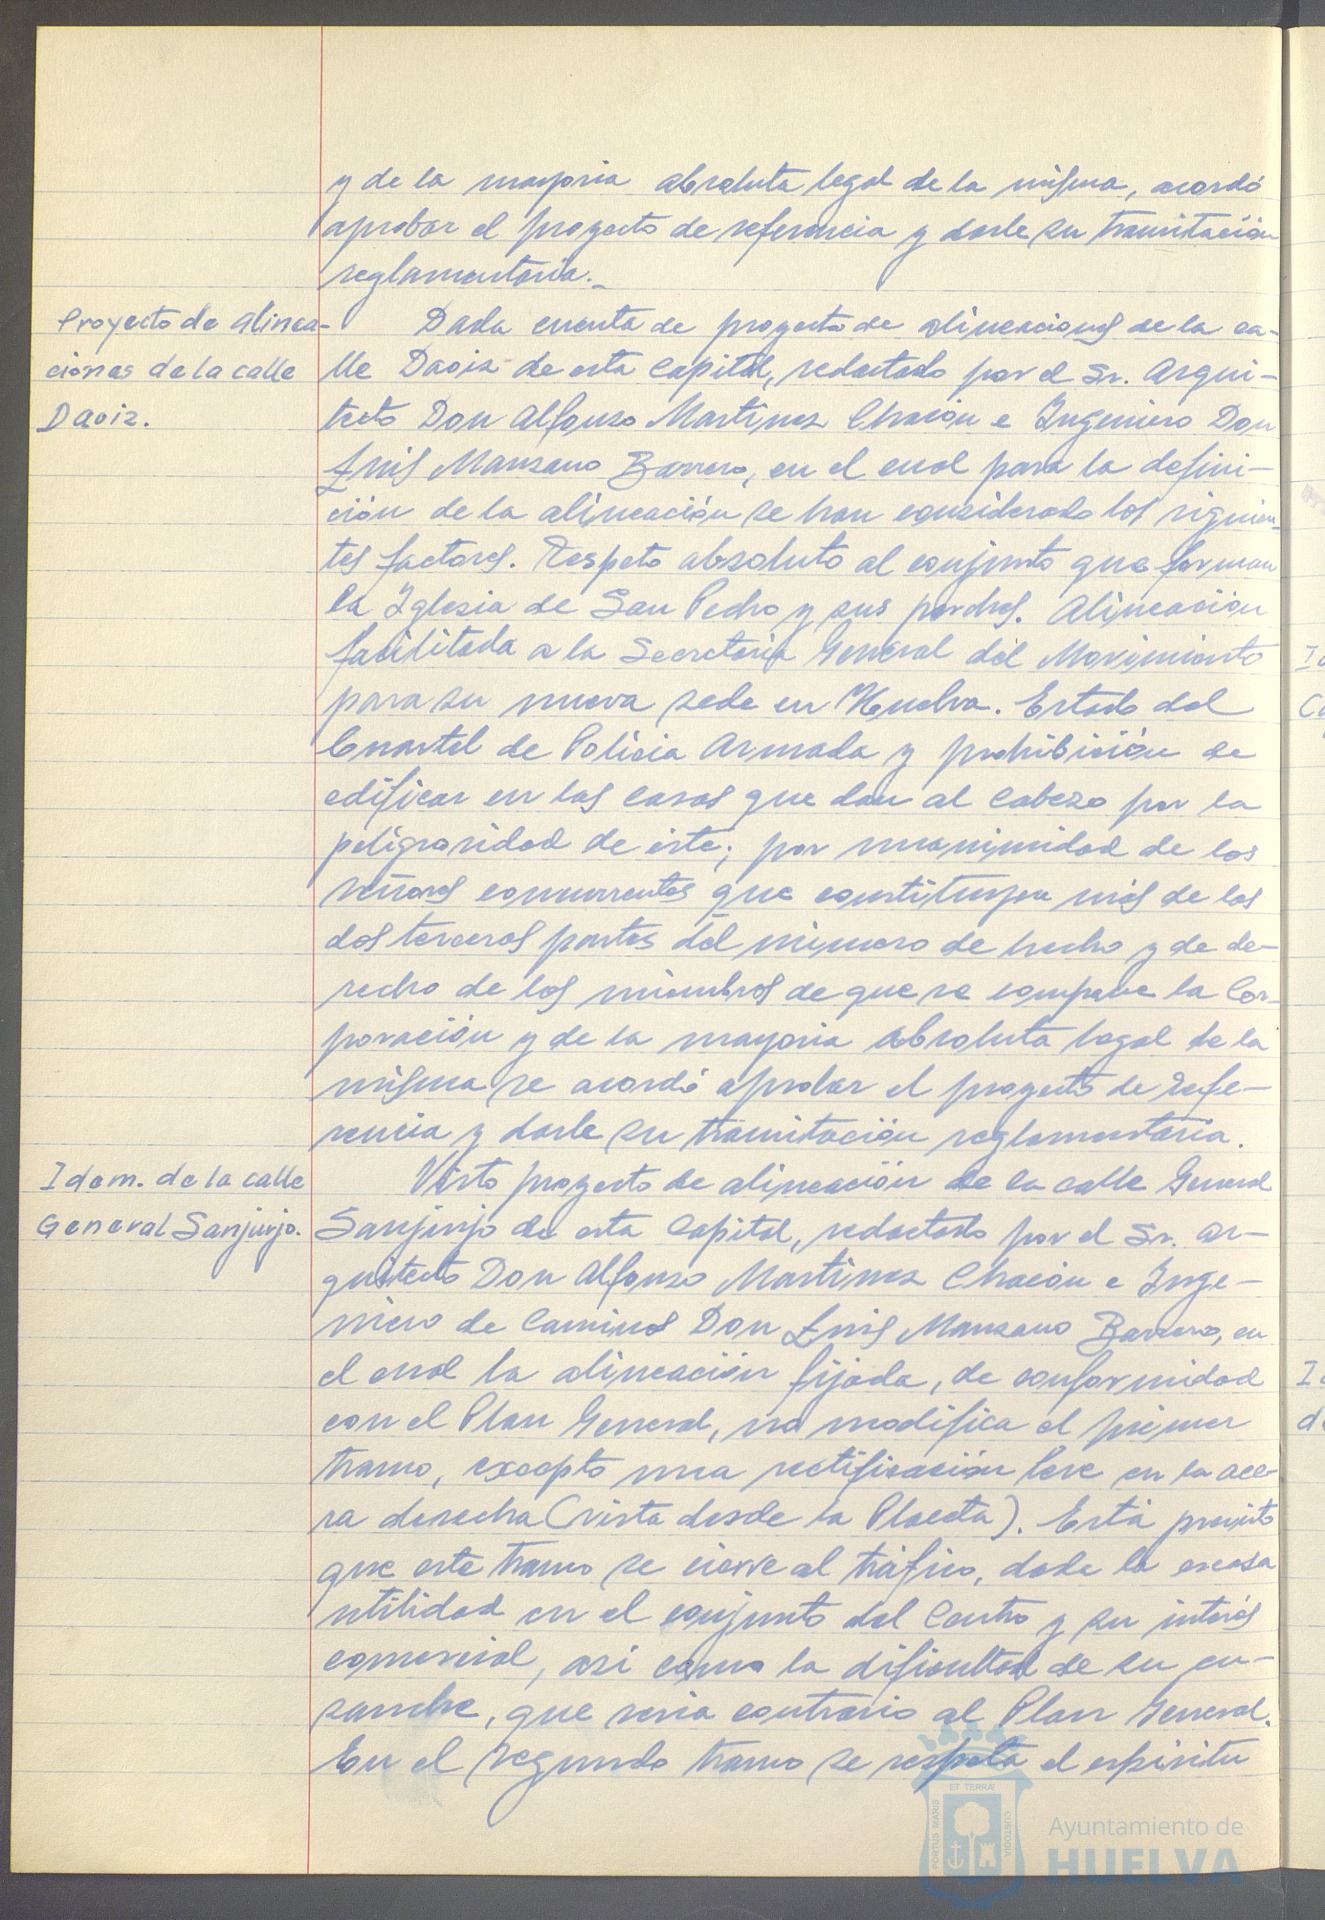 y de la mayoria absoluta legal de la misma, acordó
aprobar el proyecto de referencia y darle su tramitación
reglamentaria._
Proyecto de alinea-
ciones de la calle
Daoiz.
Dada cuenta de proyecto de alineaciones de la ca-
lle Daoiz de esta Capital, redactado por el Sr. Arqui-
tecto Don Alfonso Martinez Chacón e Ingeniero Don
Luis Manzano Barrero, en el cual para la defini-
ción de la alineación se han considerado los siguien-
tes factores. Respeto absoluto al conjunto que forman
la Iglesia de San Pedro y sus porches. Alineación
facilitada a la Secretaria General del Movimiento
para su nueva sede en Huelva. Estado del
Cuartel de Policia Armada y prohibición de
edificar en las casas que dan al Cabezo por la
peligrosidad de éste; por unanimidad de los
señores concurrentes que constituyen más de las
dos terceras partes del número de hecho y de de-
recho de los miembros de que se compone la Cor-
poración y de la mayoria absoluta legal de la
misma se acordó aprobar el proyecto de refe-
rencia y darle su tramitación reglamentaria.
Idem. de la calle
General Sanjurjo.
Visto proyecto de alineación de la calle General
Sanjurjo de esta Capital, redactado por el Sr. Ar-
quitecto Don Alfonso Martinez Chacón e Inge-
niero de Caminos Don Luis Manzano Barrero, en
el cual la alineación fijada, de conformidad
con el Plan General, no modifica el primer
tramo, excepto una rectificación leve en la ace-
ra derecha (vista desde la Placeta). Está previsto
que este tramo se cierre al tráfico, dada la escasa
utilidad en el conjunto del Centro y su interés
comercial, asi como la dificultad de su en-
sanche, que seria contrario al Plan General.
En el segundo tramo se respeta el espiritu
ET TERRÆ
PORTUS MARIS
CUSTODIA
Ayuntamiento de
HUELVA